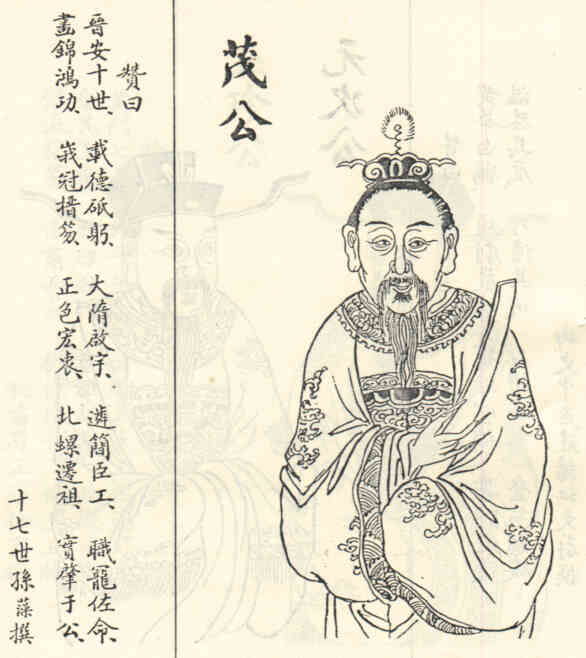 茂公
贊曰
晉安十世、載德砥躬、大隋啟宇、遴簡臣工、職寵佐命、
畫錦鴻功、峩冠搢笏、正色宏衷、北螺遷祖、實肇于公、
十七世孫藻撰